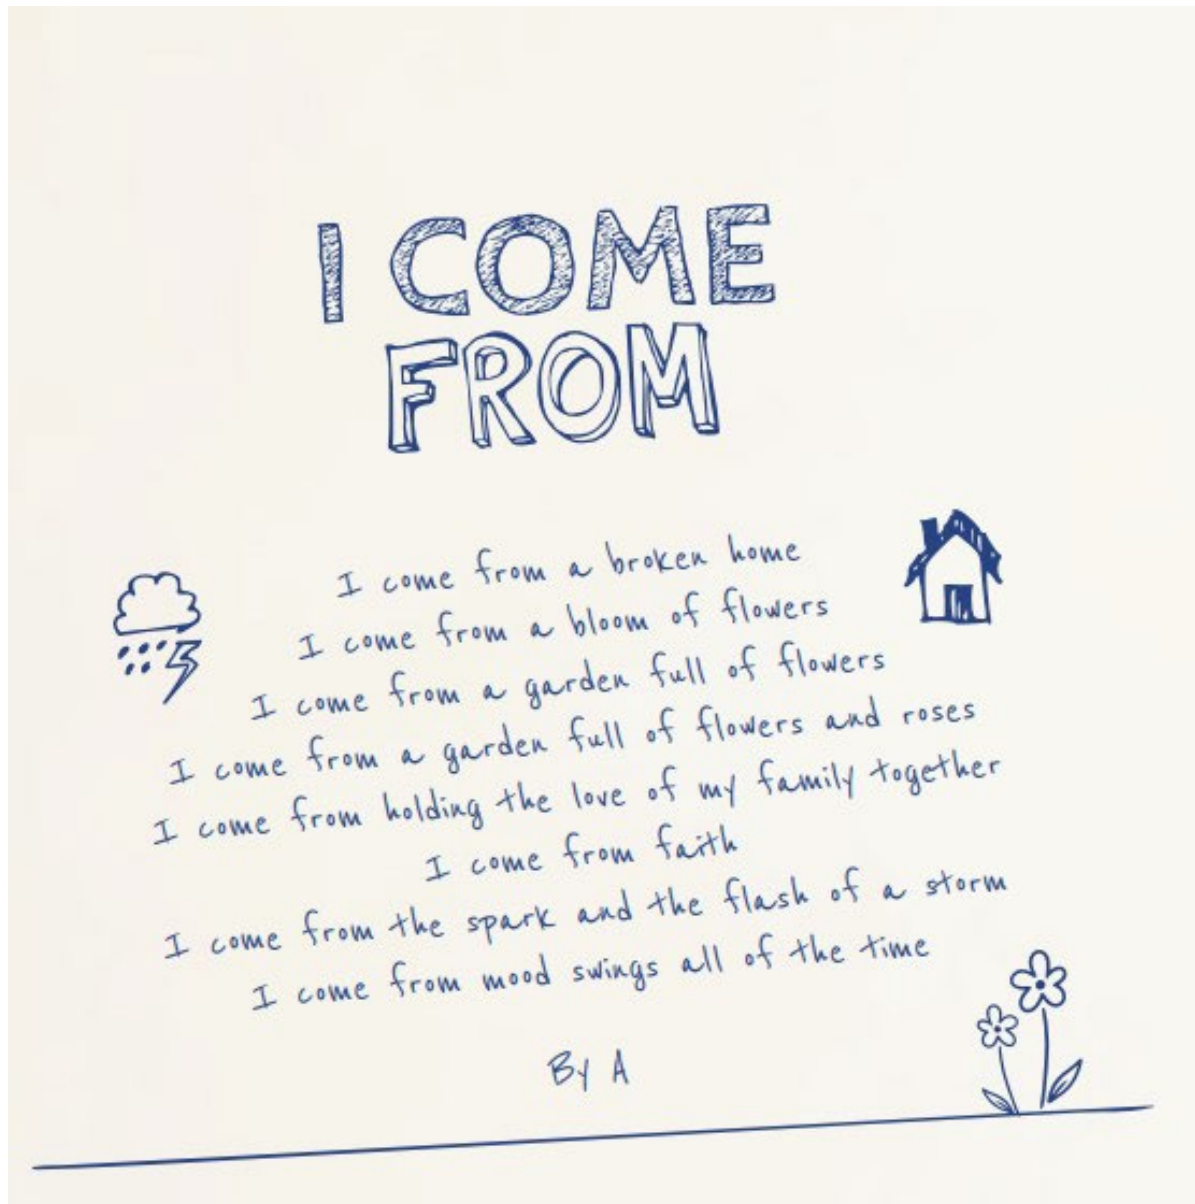 I COME
FROM
I come from a broken home
I come from a bloom of flowers
I come from a garden full of flowers
I come from a garden full of flowers and roses
I come from holding the love of my family together
I come from faith
I come from the spark and the flash of a storm
I come from mood swings all of the time
By A